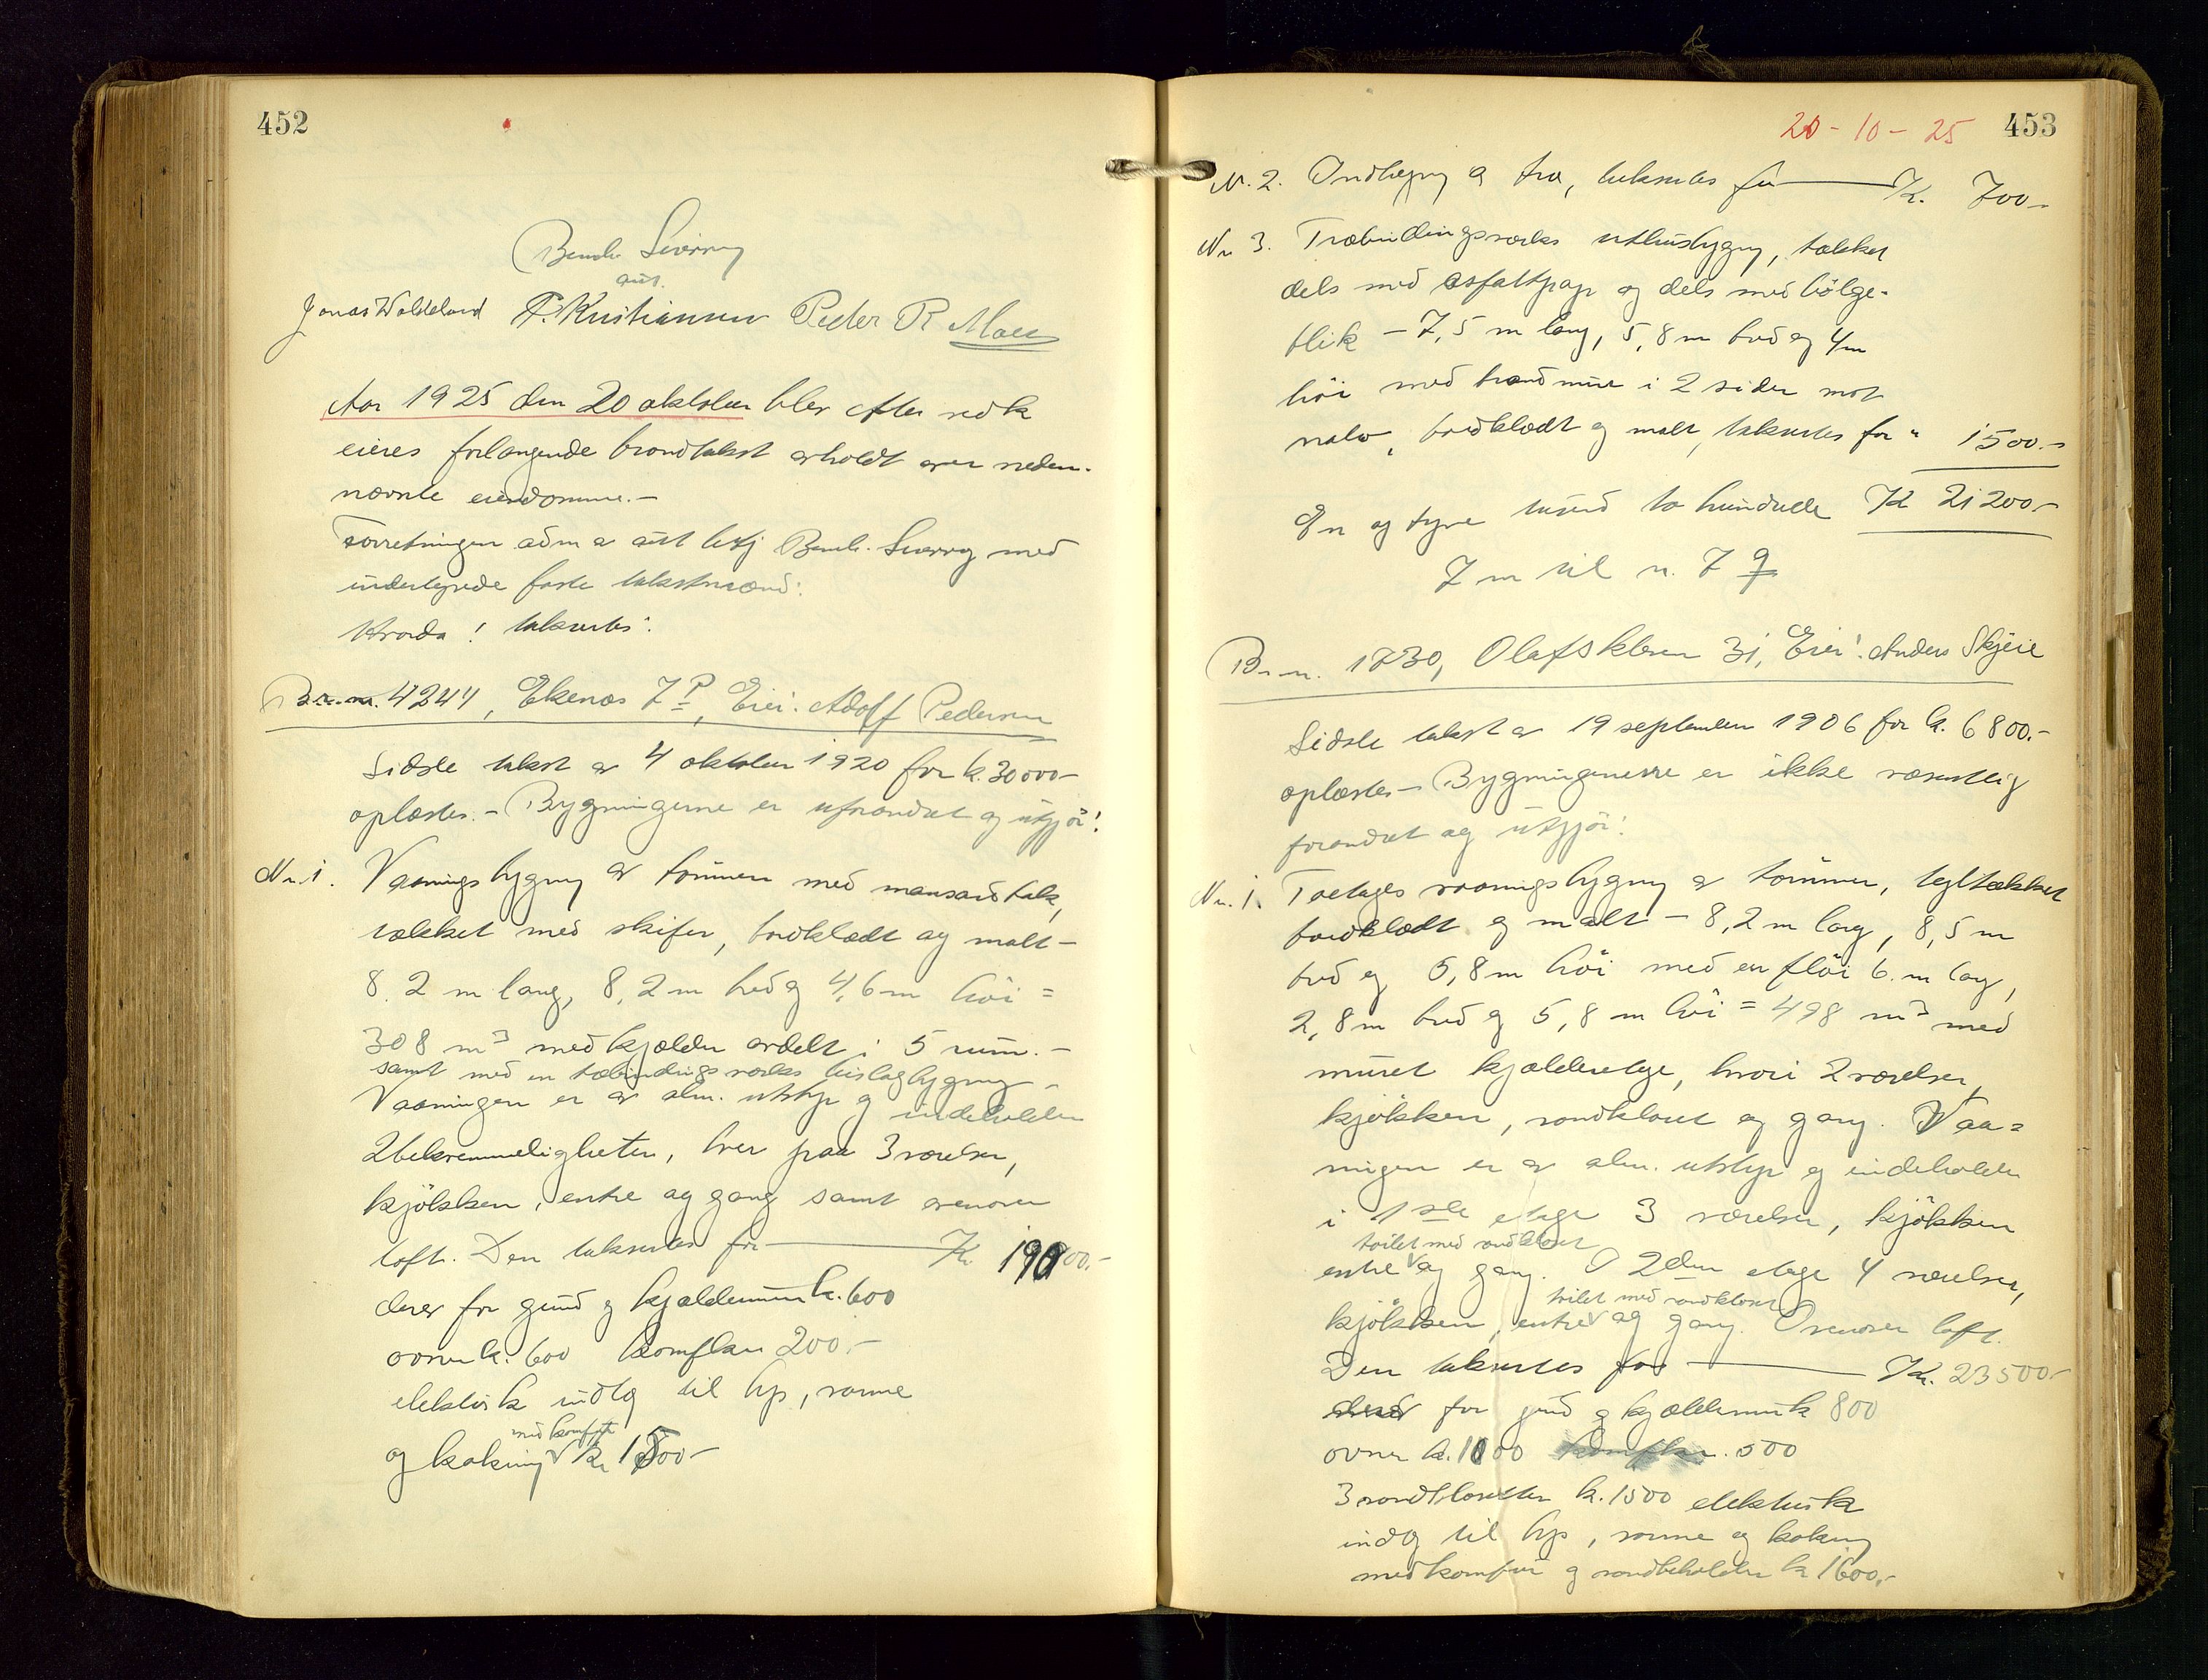 452
Bernh. Sverring
aut.
Jonas Waldeland P. Kristiansen Peder R Moen
Aar 1925 den 20 oktober blev efter vedk
eieres forlangende brandtakst avholdt over neden-
nævnte eiendomme.-
Forretningen adm av aut Bernh. Sverrig med
undertegnede faste takstmænd:
Hvorda! takseres:
Br. nr. 4244, Ekenæs 7 P, Eier: Adolf Pedersen
Sidste takst av 4 oktober 1920 for k. 30000-
oplæstes.- Bygningerne er uforandret og utgjør:
Nr. 1. Vaaningsbygng av tømmer med mansardtak,
tækket med skifer, bordklædt og malt -
8.2 m lang, 8,2 m bred og 4,6 m høi =
308 m3 med kjælder avdelt i 5 rum.-
samt med en træbindingsværks bislagbygng -
Vaaningen er av alm. utstyr og indeholder
2 bekvemmeligheter, hver paa 3 værelser,
kjøkken, entre og gang samt ovenover
loft. Den takseres for Kr. 19000.-
derav for grund og kjældermur k. 600
ovner k. 600 komfyrer 200.-
elektrisk indlg til lys, varme
med komfyr
og kokning kr 1500-
20-10-25 453
N. 2. Indhegng av træ, takseres for Kr. 700-
Nr 3. Træbindingsværks uthusbygng, tækket
dels med asfaltpap og dels med bølge-
blik - 7,5 m lang, 5,8 m bred og 4 m
høi med brandmur i 2 sider mot
nabo, bordklædt og malt, takseres for " 1500.-
En og tyve tusend to hundrede Kr 21200.-
7 m til n. 7 q
Br. n. 1730, Olafskleven 31, Eier: Anders Skjeie
Sidste takst av 19 september 1906 for k. 6800.-
oplæstes - Bygningerne er ikke væsentlig
forandret og utgjør:
Nr. 1. Toetages vaaningsbygng av tømmer, tegltækket
bordklædt og malt - 8,2 m lang, 8,5 m
bred og 5,8 m høi med en fløi 6. m lang,
2,8 m bred og 5,8 m høi = 498 m3 med
muret kjælderetage, hvori 2 værelser,
kjøkken, vandkloset og gang. Vaa=
ningen er av alm. utstyr og indeholder
i 1ste etage 3 værelser, kjøkken
toilet med vandkloset
entre og gang. I 2den etage 4 værelser,
toilet med vandkloset
kjøkken, entre og gang. Ovenover loft.
Den takseres for Kr. 23500.-
derav for grund og kjældermur k 800
ovner k. 1000 komfyrer. 500
3 vandklosetter k. 1500 elektrisk
indlg til lys, varme og kokning
med komfyr og vandbeholder k 1600.-